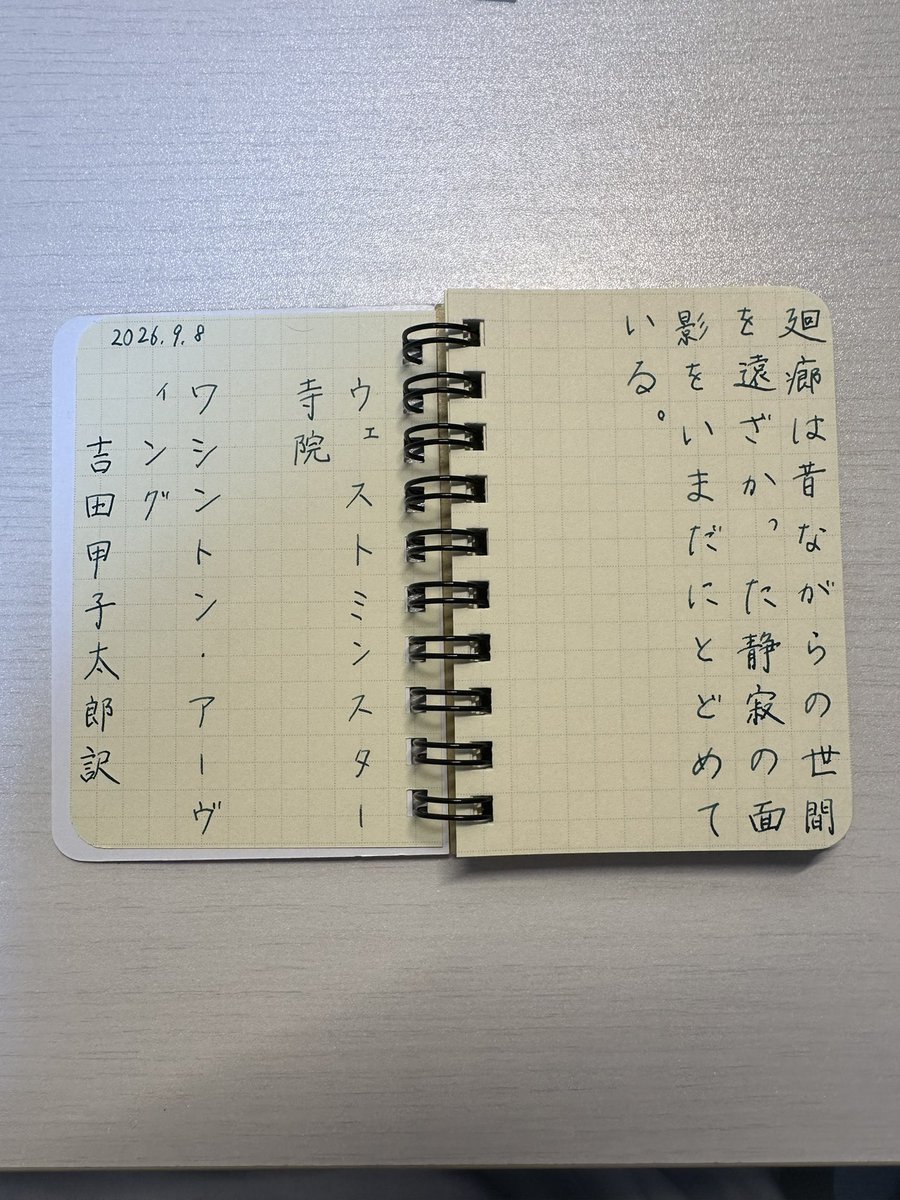 廻廊は昔ながらの世間
を遠ざかった静寂の面
影をいまだにとどめて
いる。
ウェストミンスター
寺院
ワシントン・アーヴ
ィング
吉田甲子太郎訳
2026.9.8